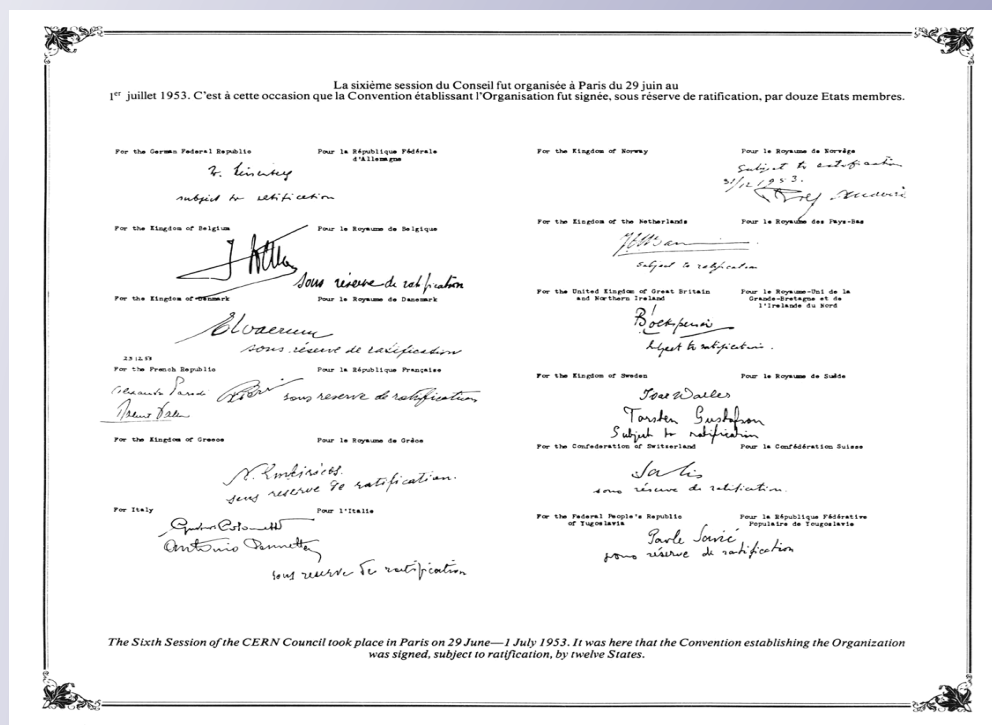 La sixième session du Conseil fut organisée à Paris du 29 juin au
1er juillet 1953. C'est à cette occasion que la Convention établissant l'Organisation fut signée, sous réserve de ratification, par douze Etats membres.
For the German Federal Republic
Pour la République Fédérale
d'Allemagne
subject to ratification
For the Kingdom of Belgium
Pour le Royaume de Belgique
sous réserve de ratification
For the Kingdom of Denmark
Pour le Royaume de Danemark
sous réserve de ratification
23 12 53
For the French Republic
Pour la République Française
sous reserve de ratification
For the Kingdom of Greece
Pour le Royaume de Grèce
sous reserve de ratification.
For Italy
Pour l'Italie
Antonio
sous reserve de ratification
For the Kingdom of Norway
Pour le Royaume de Norvège
Subject to ratification
31/12 1953.
For the Kingdom of the Netherlands
Pour le Royaume des Pays-Bas
subject to ratification
For the United Kingdom of Great Britain
and Northern Ireland
Pour le Royaume-Uni de la
Grande-Bretagne et de
l'Irlande du Nord
subject to ratification.
For the Kingdom of Sweden
Pour le Royaume de Suède
Torsten Gustafson
Subject to ratification
For the Confederation of Switzerland
Pour la Confédération Suisse
sous réserve de ratification.
For the Federal People's Republic
of Yugoslavia
Pour la République Fédérative
Populaire de Yougoslavie
Pavle Savić
sous réserve de ratification
The Sixth Session of the CERN Council took place in Paris on 29 June—1 July 1953. It was here that the Convention establishing the Organization
was signed, subject to ratification, by twelve States.